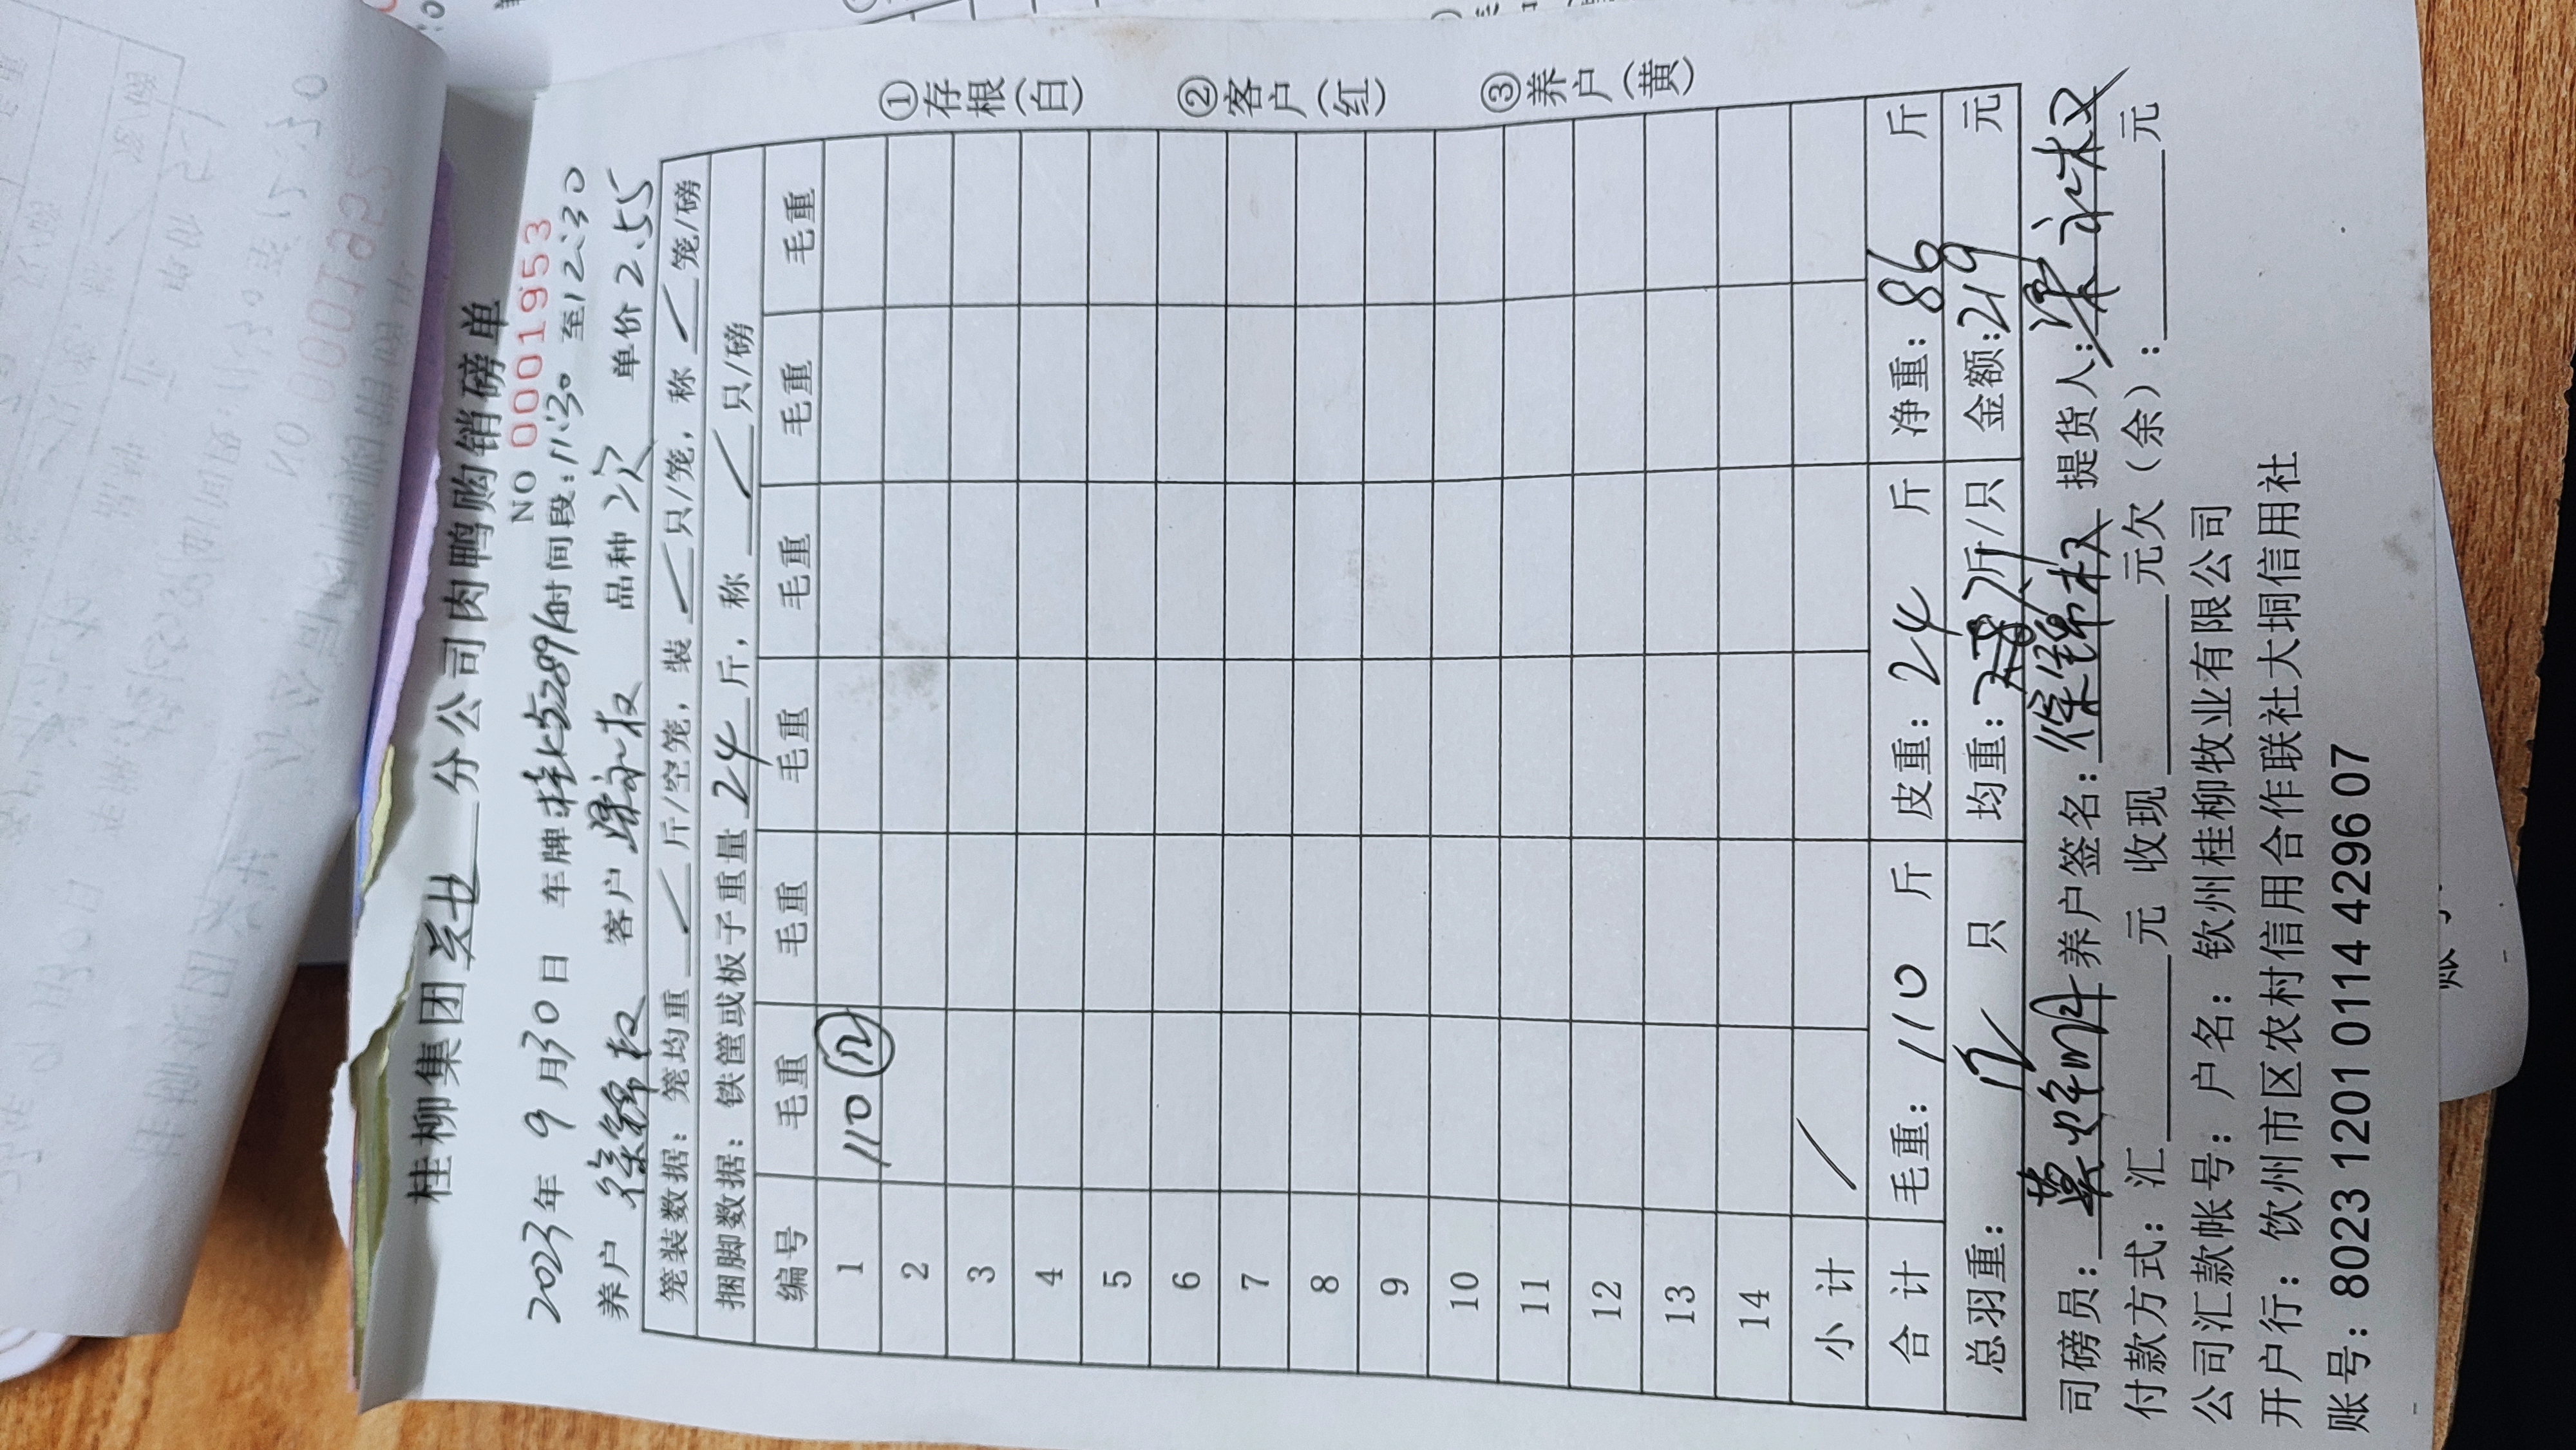 桂柳集团 分公司肉鸭购销磅单
NO 0001953
2023年 9月30日 车牌 时间段:11:30 至12:30
养户 徐锦权 客户 梁永权 品种 次 单价 2.55
笼装数据: 笼均重 斤/空笼, 装 只/笼, 称 笼/磅
捆脚数据: 铁筐或板子重量 24 斤, 称 只/磅
编号 毛重 毛重 毛重 毛重 毛重 毛重
1 110 ⑫
2
3
4
5
6
7
8
9
10
11
12
13
14
小计
合计 毛重: 110 斤 皮重: 24 斤 净重: 86 斤
总羽重: 12 只 均重: 斤/只 金额: 219 元
司磅员: 养户签名: 徐锦权 提货人: 梁永权
付款方式: 汇 元 收现 元欠(余): 元
公司汇款帐号: 户名: 钦州桂柳牧业有限公司
开户行: 钦州市区农村信用合作联社大垌信用社
账号: 8023 1201 0114 4296 07
①存根(白) ②客户(红) ③养户(黄)